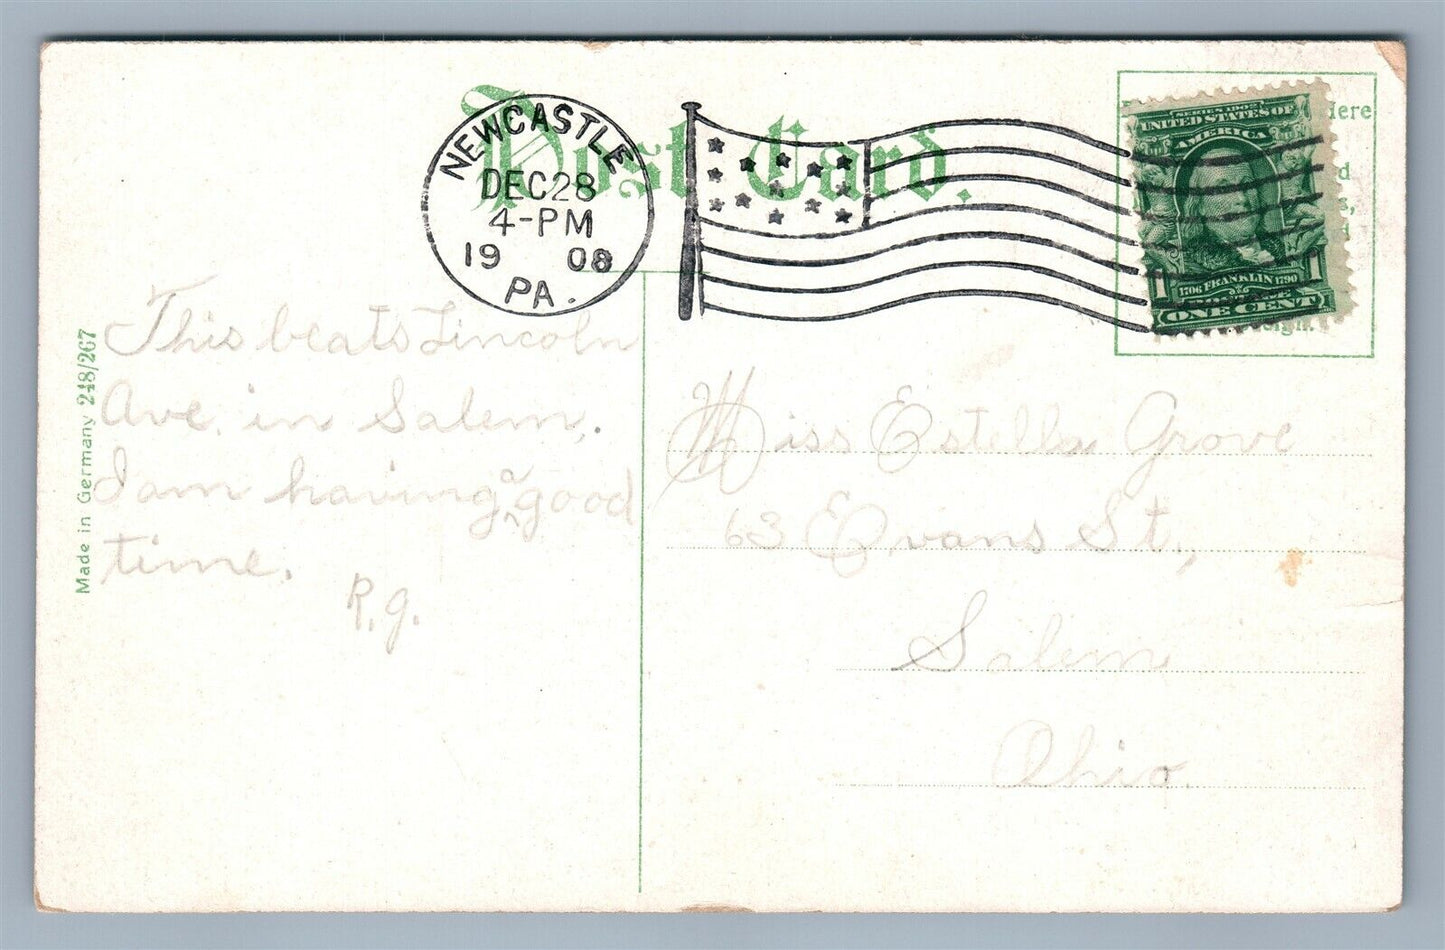 Post Card.
NEW CASTLE
DEC 28
4-PM
19 08
PA.
Here
SERIES 1902
UNITED STATES OF
AMERICA
1706 FRANKLIN 1790
1 1
ONE CENT
This beats Lincoln
Ave. in Salem.
I am having a good
time.
R.G.
Made in Germany 248/267
Miss Estella Grove
63 Evans St.,
Salem
Ohio.